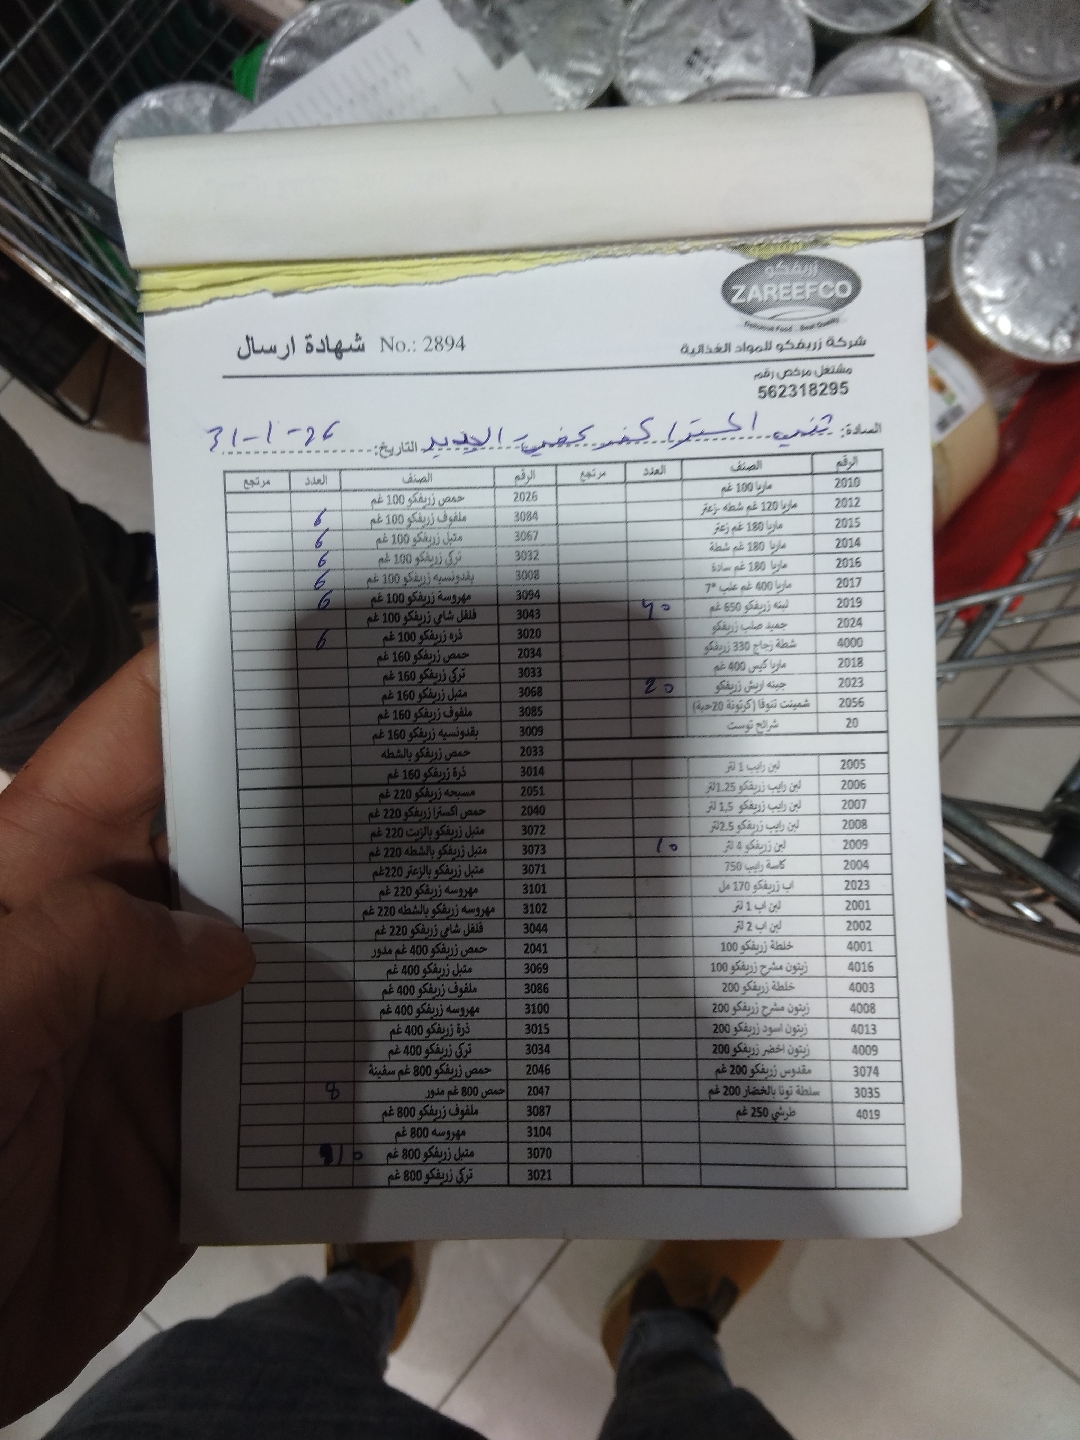 زريفكو
ZAREEFCO
شركة زريفكو للمواد الغذائية
شهادة ارسال No.: 2894
مشتغل مرخص رقم
562318295
السادة:
التاريخ: 31-1-26
الرقم الصنف العدد مرتجع الرقم الصنف العدد مرتجع
2010 ماريا 100 غم 2026 حمص زريفكو 100 غم
2012 ماريا 120 غم شطه -زعتر 3084 ملفوف زريفكو 100 غم 6
2015 ماريا 180 غم زعتر 3067 متبل زريفكو 100 غم 6
2014 ماريا 180 غم شطة 3032 تركي زريفكو 100 غم 6
2016 ماريا 180 غم سادة 3008 بقدونسيه زريفكو 100 غم 6
2017 ماريا 400 غم علب *7 3094 مهروسة زريفكو 100 غم 6
2019 لبنه زريفكو 650 غم 3043 فلفل شامي زريفكو 100 غم
2024 جميد صلب زريفكو 3020 ذره زريفكو 100 غم 6
4000 شطة زجاج 330 زريفكو 2034 حمص زريفكو 160 غم
2018 ماريا كيس 400 غم 3033 تركي زريفكو 160 غم
2023 جبنه اريش زريفكو 20 3068 متبل زريفكو 160 غم
2056 شمينت تنوفا (كرتونة 20حبة) 3085 ملفوف زريفكو 160 غم
20 شرائح توست 3009 بقدونسيه زريفكو 160 غم
2033 حمص زريفكو بالشطه
2005 لبن رايب 1 لتر 3014 ذرة زريفكو 160 غم
2006 لبن رايب زريفكو 1.25لتر 2051 مسبحه زريفكو 220 غم
2007 لبن رايب زريفكو 1,5 لتر 2040 حمص اكسترا زريفكو 220 غم
2008 لبن رايب زريفكو 2.5لتر 3072 متبل زريفكو بالزيت 220 غم
2009 لبن زريفكو 4 لتر 10 3073 متبل زريفكو بالشطه 220 غم
2004 كاسة رايب 750 3071 متبل زريفكو بالزعتر 220غم
2023 اب زريفكو 170 مل 3101 مهروسه زريفكو 220 غم
2001 لبن اب 1 لتر 3102 مهروسه زريفكو بالشطه 220 غم
2002 لبن اب 2 لتر 3044 فلفل شامي زريفكو 220 غم
4001 خلطة زريفكو 100 2041 حمص زريفكو 400 غم مدور
4016 زيتون مشرح زريفكو 100 3069 متبل زريفكو 400 غم
4003 خلطة زريفكو 200 3086 ملفوف زريفكو 400 غم
4008 زيتون مشرح زريفكو 200 3100 مهروسه زريفكو 400 غم
4013 زيتون اسود زريفكو 200 3015 ذرة زريفكو 400 غم
4009 زيتون اخضر زريفكو 200 3034 تركي زريفكو 400 غم
3074 مقدوس زريفكو 200 غم 2046 حمص زريفكو 800 غم سفينة
3035 سلطة تونا بالخضار 200 غم 2047 حمص 800 غم مدور 8
4019 طرشي 250 غم 3087 ملفوف زريفكو 800 غم
3104 مهروسه 800 غم
3070 متبل زريفكو 800 غم 10
3021 تركي زريفكو 800 غم